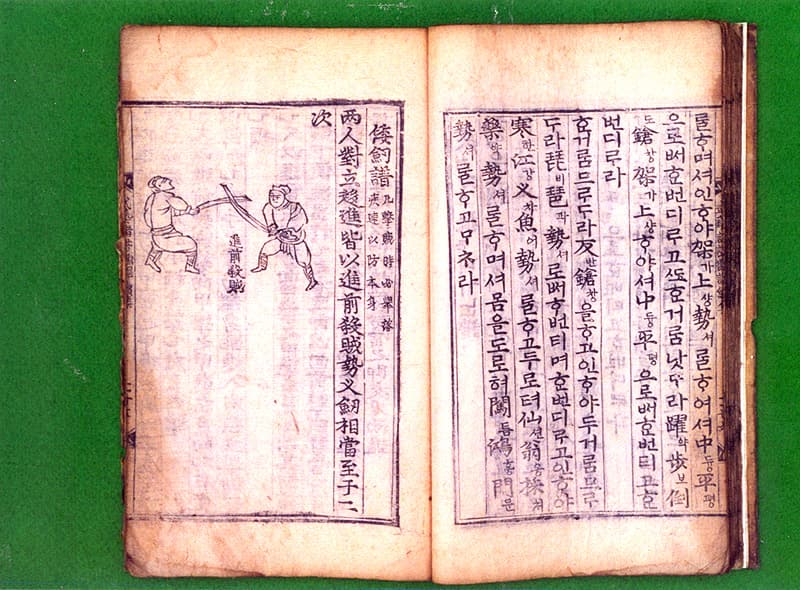 를ᄒᆞ며셔인ᄒᆞ야架가上샹勢셔를ᄒᆞ여셔中듕平평
으로ᄲᅢᄒᆞ번디루고ᄯᅩᄒᆞ거름낫ᄃᆞ라躍약步보倒
도鎗창架가上샹ᄒᆞ야셔中듕平평으로ᄲᅢᄒᆞ번티고ᄒᆞ
번디루라
ᄒᆞ거름므르두라反반鎗창을ᄒᆞ고인ᄒᆞ야두거름므르
두라琵비琶파勢셔로ᄲᅢᄒᆞ번티며ᄒᆞ번디루고인ᄒᆞ야
寒한江강叉차魚어勢셔를ᄒᆞ고두로텨仙션翁옹採
藥약勢셔를ᄒᆞ며셔몸을도로혀闖鴻홍門문
勢셔를ᄒᆞ고ᄆᆞᄎᆞ라
倭劒譜
凡擊賊時必舉落
疾速以防本身
两人對立趍進皆以進前殺賊勢乂劒相當至于二
次
進前殺賊